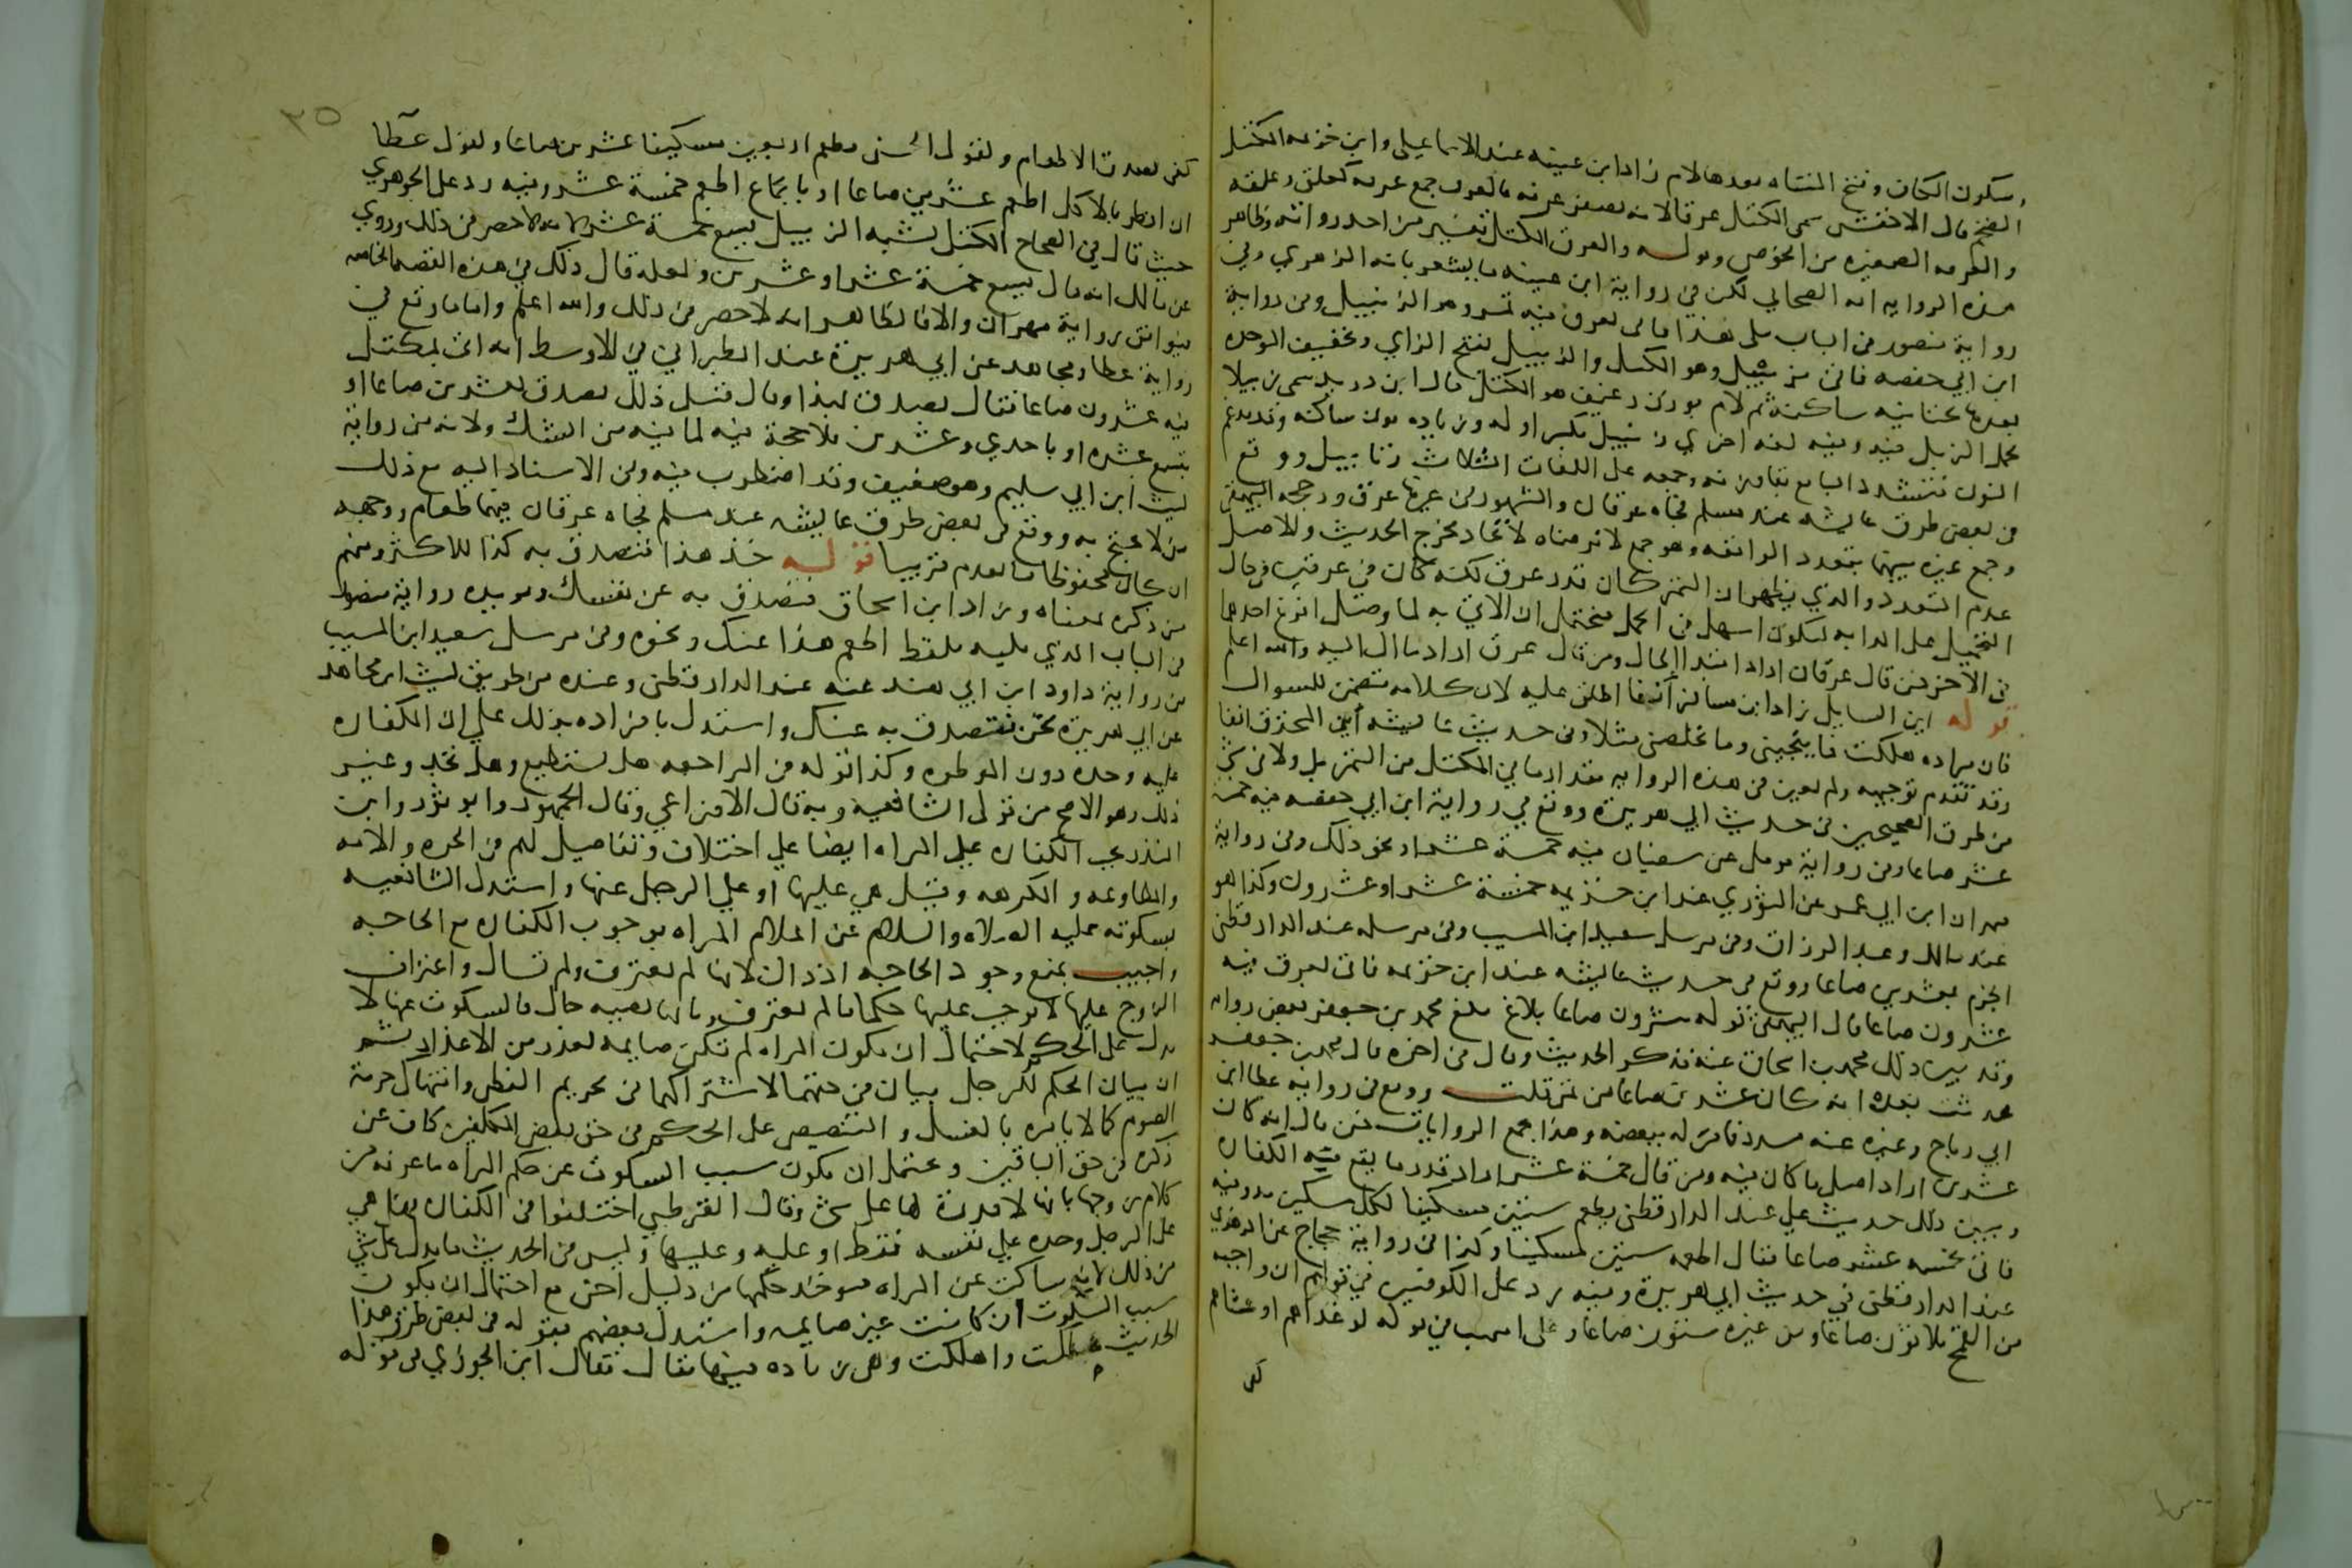 وسكون الكاف وفتح المثناه بعدها لام زاد ابن عيينه عند الاسماعيلي وابن خزيمه المكتل
الضخم قال الاخفش سمي المكتل عرقا لانه يضفر عرقه عرقه فالعرق جمع عرقه كعلق وعلقه
والعرقه الضفيره من الخوص وقوله والعرق المكتل تفسير من احد رواته وظاهر
هذه الروايه انه الصحابي لكن في رواية ابن عيينه ما يشعر بانه الزهري وفي
رواية منصور في الباب يلي هذا فاتى بعرق فيه تمر وهو الزبيل وفي رواية
ابن ابي حفصه فاتى بزبيل وهو المكتل والزبيل بفتح الزاي وتخفيف الموحده
بعدها تحتانيه ساكنه ثم لام بوزن رغيف هو المكتل قال ابن دريد سمي زبيلا
لحمل الزبل فيه وفيه لغه اخرى زنبيل بكسر اوله وزياده نون ساكنه وقد تدغم
النون فتشدد الباء مع بقاء وزنه وجمعه على اللغات الثلاث زنابيل ووقع
في بعض طرق عائشه عند مسلم فجاءه عرقان والمشهور في غيرها عرق ورجحه البيهقي
وجمع غيره بينهما بتعدد الواقعه وهو جمع لا نرضاه لاتحاد مخرج الحديث والاصل
عدم التعدد والذي يظهر ان التمر كان قدر عرق لكنه كان في عرقين في حال
التحميل على الدابه ليكون اسهل في الحمل فيحتمل ان الاتي به لما وصل افرغ احدهما
في الاخر فمن قال عرقان اراد ابتدا الحال ومن قال عرق اراد ما ال اليه والله اعلم
قوله اين السايل زاد ابن مسافر آنفا اطلق عليه لان كلامه متضمن للسوال
فان مراده هلكت فما ينجيني وما يخلصني مثلا وفي حديث عائشه اين المحترق انفا
وقد تقدم توجيهه ولم يعين في هذه الروايه مقدار ما في المكتل من التمر بل ولا في شي
من طرق الصحيحين في حديث ابي هريرة ووقع في رواية ابن ابي حفصه فيه خمسة
عشر صاعا وفي رواية مومل عن سفيان فيه خمسة عشر او نحو ذلك وفي رواية
مهران ابن ابي عمر عن الثوري عند ابن خزيمه خمسة عشر او عشرون وكذا هو
عند مالك وعبد الرزاق وفي مرسل سعيد ابن المسيب وفي مرسله عند الدارقطني
الجزم بعشرين صاعا ووقع في حديث عائشه عند ابن خزيمه فاتى بعرق فيه
عشرون صاعا قال البيهقي قوله عشرون صاعا بلاغ بلغ محمد بن جعفر يعني بعض رواه
وقد بين ذلك محمد بن اسحاق عنه فذكر الحديث وقال في اخره قال محمد بن جعفر
فحدثت بعد انه كان عشرين صاعا من تمر قلت ووقع في رواية عطا ابن
ابي رباح وغيره عند مسدد فامر له ببعضه وهذا يجمع الروايات فمن قال انه كان
عشرين اراد اصل ما كان فيه ومن قال خمسة عشر اراد قدر ما يقع به الكفاره
ويبين ذلك حديث علي عند الدارقطني يطعم ستين مسكينا لكل مسكين مد وفيه
فاتى بخمسه عشر صاعا فقال اطعمه ستين مسكينا وكذا في رواية حجاج عن الزهري
عند الدارقطني في حديث ابي هريرة وفيه رد على الكوفيين في قولهم ان واجبه
من القمح ثلاثون صاعا ومن غيره ستون صاعا وعلى اشهب في قوله لو غداهم او عشاهم
كفى
٣٥
كفى لصدق الاطعام ولقول الحسن يطعم اربعين مسكينا عشرين صاعا ولقول عطا
ان افطر بالاكل اطعم عشرين صاعا او بالجماع اطعم خمسة عشر وفيه رد على الجوهري
حيث قال في الصحاح المكتل يشبه الزبيل يسع خمسة عشر لانه لا حصر في ذلك وروي
عن مالك انه قال يسع خمسة عشر او عشرين ولعله قال ذلك في هذه القصه الخاصه
فيوافق رواية مهران والا فالظاهر انه لا حصر في ذلك والله اعلم واما ما وقع في
رواية عطا ومجاهد عن ابي هريرة عند الطبراني في الاوسط انه اتى بمكتل
فيه عشرون صاعا فقال تصدق بهذا وقال قبل ذلك تصدق بعشرين صاعا او
بتسع عشره او باحدي وعشرين فلا حجة فيه لما فيه من الشك ولانه من رواية
ليث ابن ابي سليم وهو ضعيف وقد اضطرب فيه وفي الاسناد اليه مع ذلك
من لا يحتج به ووقع في بعض طرق عاليشه عند مسلم فجاءه عرقان فيهما طعام ووجهه
ان كان محفوظا ما تقدم قريبا قوله خذ هذا فتصدق به كذا للاكثر ومنهم
من ذكره بمعناه وزاد ابن اسحاق فتصدق به عن نفسك ويويده رواية منصور
في الباب الذي يليه بلفظ اطعم هذا عنك ونحوه وفي مرسل سعيد ابن المسيب
من رواية داود ابن ابي هند عنه عند الدارقطني وعنده من طريق ليث عن مجاهد
عن ابي هريرة نحن نتصدق به عنك واستدل بافراده بذلك علي ان الكفاره
عليه وحده دون الموطوه وكذا قوله في المراجعه هل تستطيع وهل تجد وغير
ذلك وهو الاصح من قولي الشافعيه وبه قال الاوزاعي وقال الجمهور وابو ثور وابن
المنذر تجب الكفاره علي المراه ايضا علي اختلاف وتفاصيل لهم في الحره والامه
والمطاوعه والمكرهه وقيل هي عليها او علي الرجل عنها واستدل الشافعيه
بسكوته عليه الصلاه والسلام عن اعلام المراه بوجوب الكفاره مع الحاجه
واجيب بمنع وجود الحاجه اذ ذاك لانها لم تعترف ولم تسال واعتراف
الزوج عليها لا يوجب عليها حكما ما لم تعترف وبانها قضيه حال فالسكوت عنها لا
يدل على الحكم لاحتمال ان تكون المراه لم تكن صايمه لعذر من الاعذار ثم
ان بيان الحكم للرجل بيان في حقها لاشتراكهما في تحريم الفطر وانتهاك حرمة
الصوم كما لم يامره بالغسل والتنصيص على الحكم في حق بعض المكلفين كاف عن
ذكره في حق الباقين ويحتمل ان يكون سبب السكوت عن حكم المراه ما عرفه من
كلام زوجها بانها لا قدرة لها على شي وقال القرطبي اختلفوا في الكفاره هل هي
على الرجل وحده علي نفسه فقط او عليه وعليها وليس في الحديث ما يدل على شي
من ذلك لانه ساكت عن المراه فيوخذ حكمها من دليل اخر مع احتمال ان يكون
سبب السكوت ان كانت غير صايمه واستدل بعضهم بقوله في بعض طرق هذا
الحديث هلكت واهلكت وهي زياده فيها مقال فقال ابن الجوزي في قوله